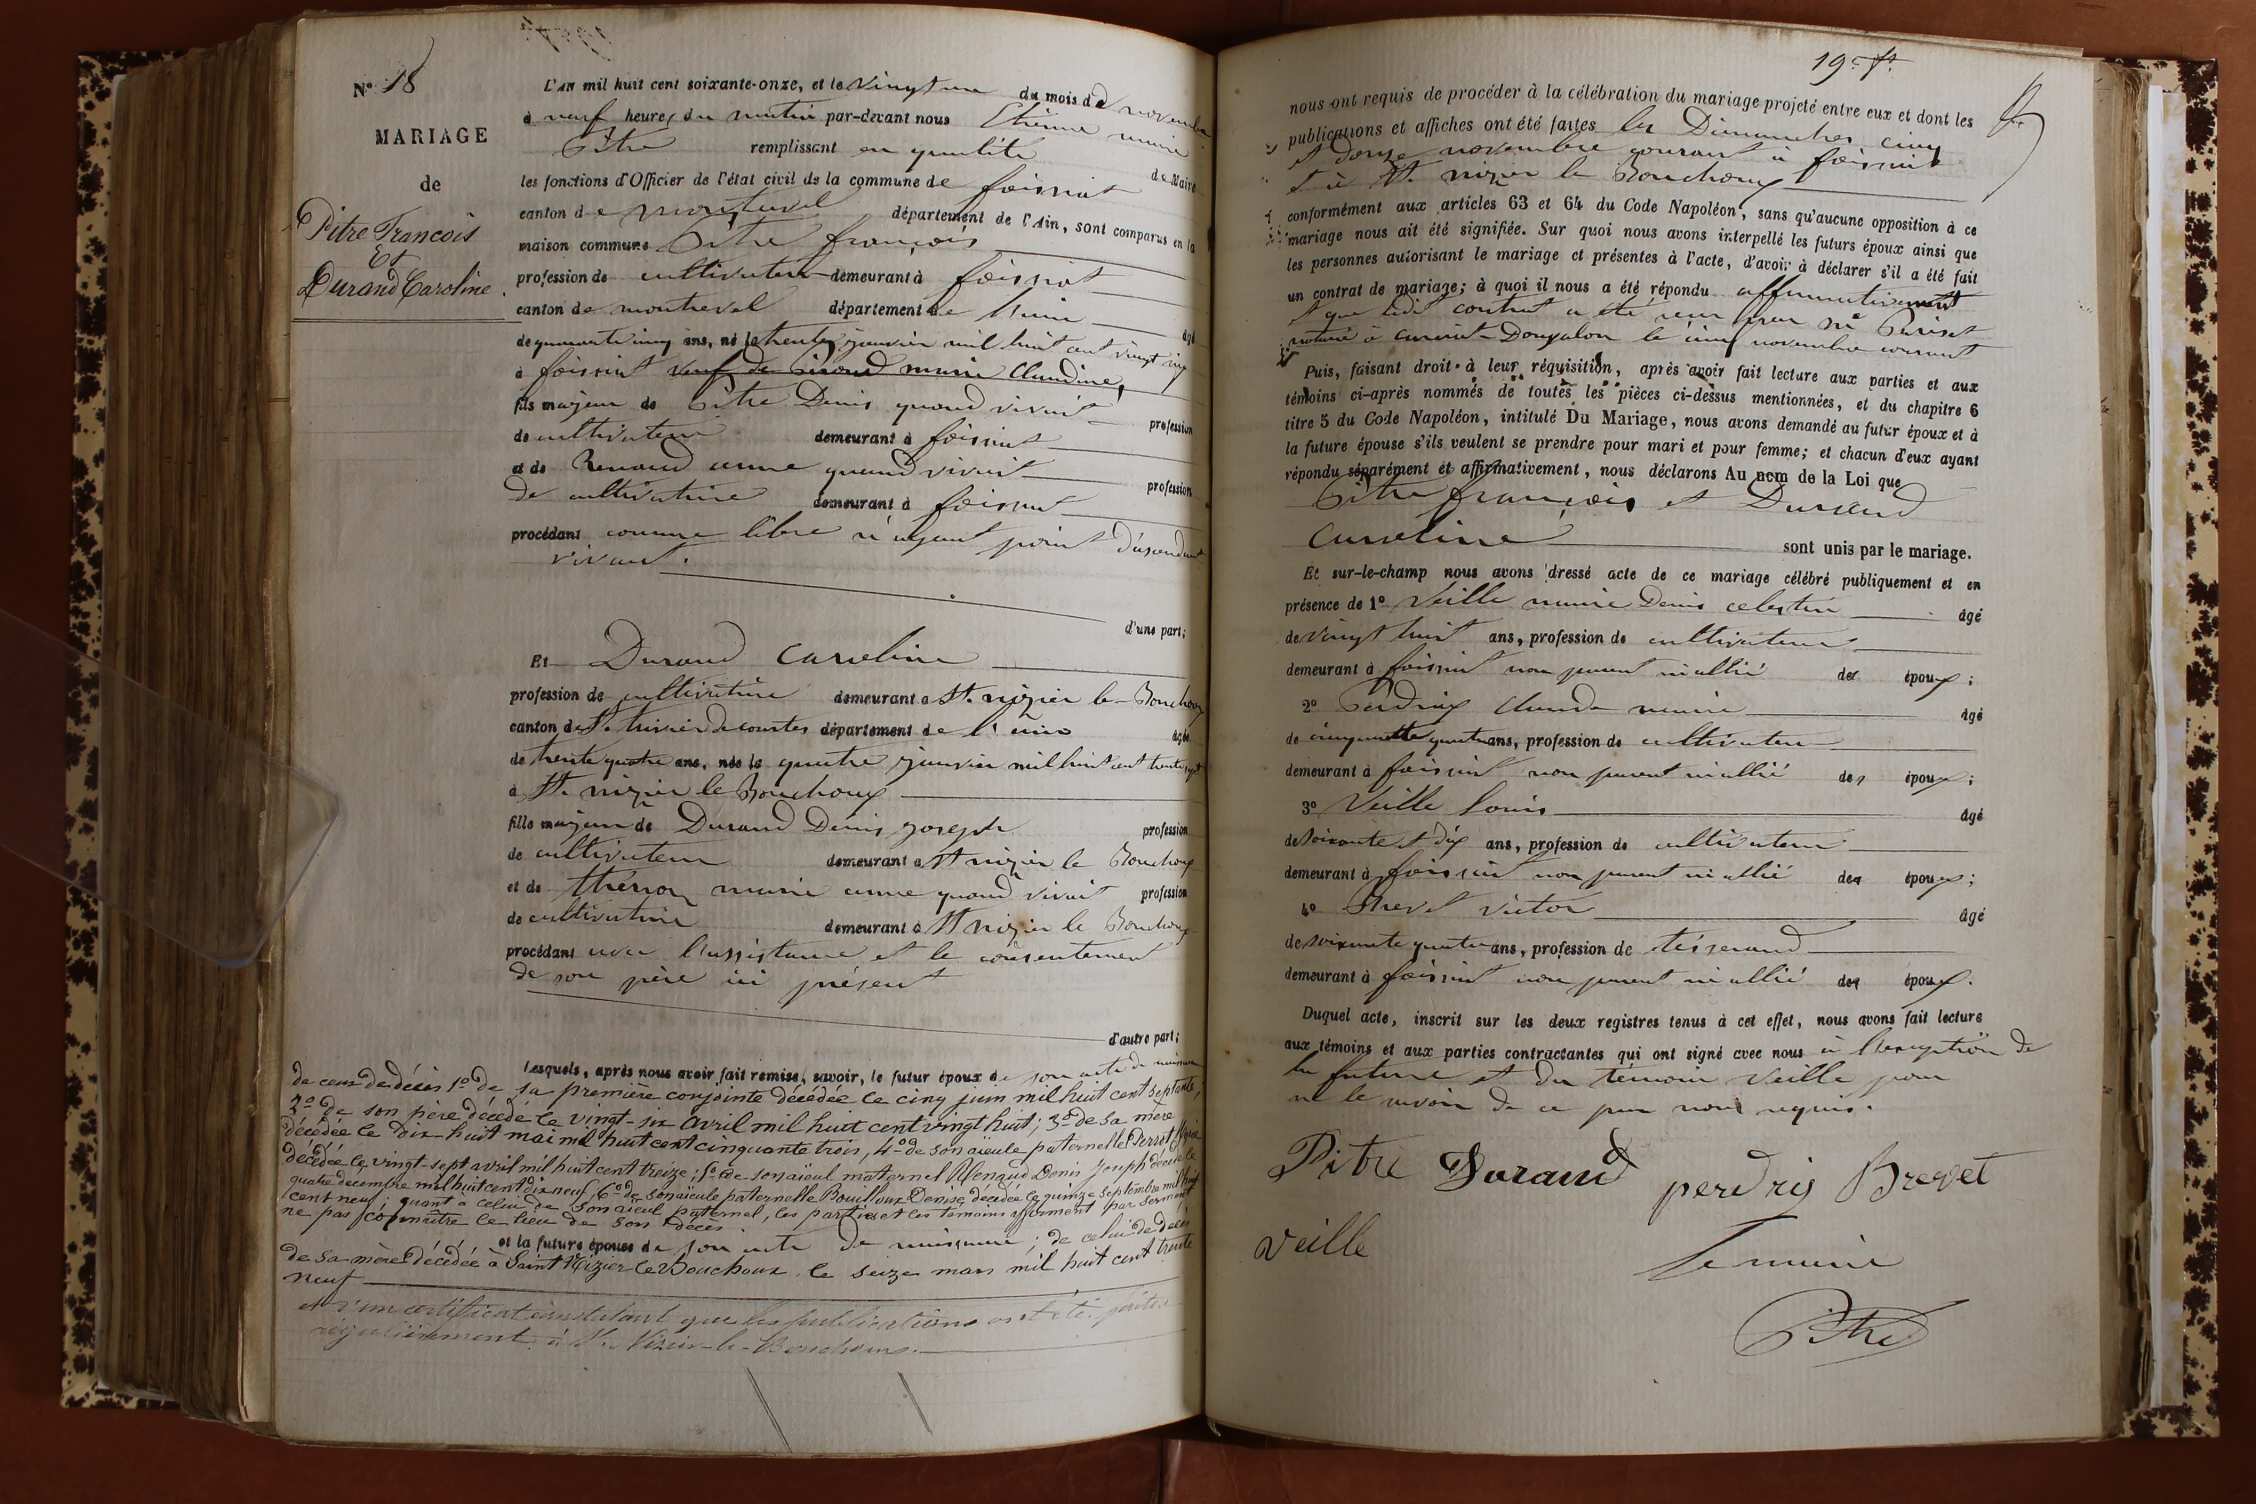 N° 18
MARIAGE
de
Pitre François
Et
Durand Caroline
L'AN mil huit cent soixante-onze, et le vingt un du mois de novembre
à neuf heures du matin par-devant nous Etienne marie
Pitre remplissant en qualité de Maire
les fonctions d'Officier de l'état civil de la commune de foissiat
canton de montrevel département de l'Ain, sont comparus en la
maison commune Pitre françois
profession de cultivateur demeurant à foissiat
canton de montrevel département de l'ain âgé
de quarante cinq ans, né le trente janvier mil huit cent vingt six
à foissiat veuf de marie Claudine,
fils majeur de Pitre Denis quand vivait profession
de cultivateur demeurant à foissiat
et de Renaud anne quand vivait profession
de cultivatrice demeurant à foissiat
procédant comme libre n'ayant point d'ascendant
vivant.
d'une part;
Et Durand Caroline
profession de cultivatrice demeurant à St. nizier le Bouchoux
canton de St. trivier de courtes département de l'ain âgée
de trente quatre ans, née le quatre janvier mil huit cent trente sept
à St. nizier le Bouchoux
fille majeure de Durand Denis joseph profession
de cultivateur demeurant à St nizier le Bouchoux
et de marie anne quand vivait profession
de cultivatrice demeurant à St nizier le Bouchoux
procédant avec l'assistance et le consentement
de son père ici présent
d'autre part;
Lesquels, après nous avoir fait remise, savoir, le futur époux de son acte de naissance
de ceux de décès 1° de sa première conjointe décédée le cinq juin mil huit cent septante,
2° de son père décédé le vingt-six avril mil huit cent vingt huit; 3° de sa mère
décédée le dix huit mai mil huit cent cinquante trois, 4° de son aïeule paternelle Perret
décédée le vingt-sept avril mil huit cent treize; 5° de son aïeul maternel Renaud Denis Joseph décédé le
quatre décembre mil huit cent dix neuf, 6° de son aïeule paternelle Bouilloux Denise décédée le quinze septembre mil huit
cent neuf; quant à celui de son aïeul paternel, les parties et les témoins afforment par serment
ne pas connaître le lieu de son décès
et la future épouse de son acte de naissance; de celui de décès
de sa mère décédée à Saint Nizier le Bouchoux le seize mars mil huit cent trente
neuf
et d'un certificat constatant que les publications ont été faites
régulièrement à St. Nizier-le-Bouchoux.
19e ft.
nous ont requis de procéder à la célébration du mariage projeté entre eux et dont les
publications et affiches ont été faites les Dimanches cinq
et douze novembre courant à foissiat
et à St. nizier le Bouchoux
conformément aux articles 63 et 64 du Code Napoléon, sans qu'aucune opposition à ce
mariage nous ait été signifiée. Sur quoi nous avons interpellé les futurs époux ainsi que
les personnes autorisant le mariage et présentes à l'acte, d'avoir à déclarer s'il a été fait
un contrat de mariage; à quoi il nous a été répondu affirmativement
et que ledit contrat a été reçu par Me Pariset
notaire à curciat-Dongalon le cinq novembre courant
Puis, faisant droit à leur réquisition, après avoir fait lecture aux parties et aux
témoins ci-après nommés de toutes les pièces ci-dessus mentionnées, et du chapitre 6
titre 5 du Code Napoléon, intitulé Du Mariage, nous avons demandé au futur époux et à
la future épouse s'ils veulent se prendre pour mari et pour femme; et chacun d'eux ayant
répondu séparément et affirmativement, nous déclarons Au nom de la Loi que
Pitre françois et Durand
Caroline sont unis par le mariage.
Et sur-le-champ nous avons dressé acte de ce mariage célébré publiquement et en
présence de 1° Veille marie Denis celestin âgé
de vingt huit ans, profession de cultivateur
demeurant à foissiat non parent ni allié des époux;
2° Perdrix Claude marie âgé
de cinquante quatre ans, profession de cultivateur
demeurant à foissiat non parent ni allié des époux;
3° Veille Louis âgé
de soixante et dix ans, profession de cultivateur
demeurant à foissiat non parent ni allié des époux;
4° Brevet victor âgé
de soixante quatre ans, profession de tisserand
demeurant à foissiat non parent ni allié des époux.
Duquel acte, inscrit sur les deux registres tenus à cet effet, nous avons fait lecture
aux témoins et aux parties contractantes qui ont signé avec nous à l'exception de
la future et du témoin Veille pour
ne le savoir de ce par nous requis.
Pitre Durand perdrix Brevet
Veille
Le maire
Pitre